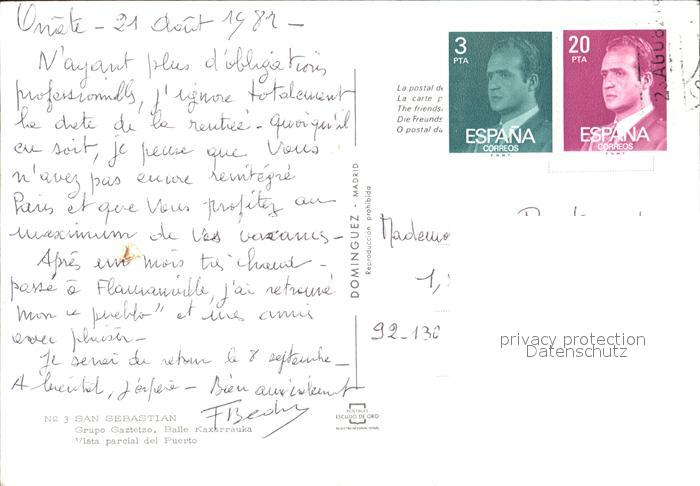 Oñate - 21 Août 1982 -
N'ayant plus d'obligations
professionnelles, j'ignore totalement
la date de la rentrée - Quoiqu'il
en soit, je pense que vous
n'avez pas encore réintégré
Paris et que vous profitez au
maximum de vos vacances -
Après un mois très chaud -
passé à Flamanville, j'ai retrouvé
mon "pueblo" et mes amis
avec plaisir -
Je serai de retour le 8 septembre -
A bientôt, j'espère - Bien amicalement
Nº 3 SAN SEBASTIAN
Grupo Gaztetzo, Balle Kaxarrauka
Vista parcial del Puerto
DOMINGUEZ - MADRID
Reproducción prohibida
POSTALES
ESCUDO DE ORO
La postal de
La carte p
The friends
Die Freunds
O postal du
3
PTA
ESPAÑA
CORREOS
F.N.M.T.
20
PTA
ESPAÑA
CORREOS
F.N.M.T.
2 AGO
Mademo
1,
92-130
privacy protection
Datenschutz